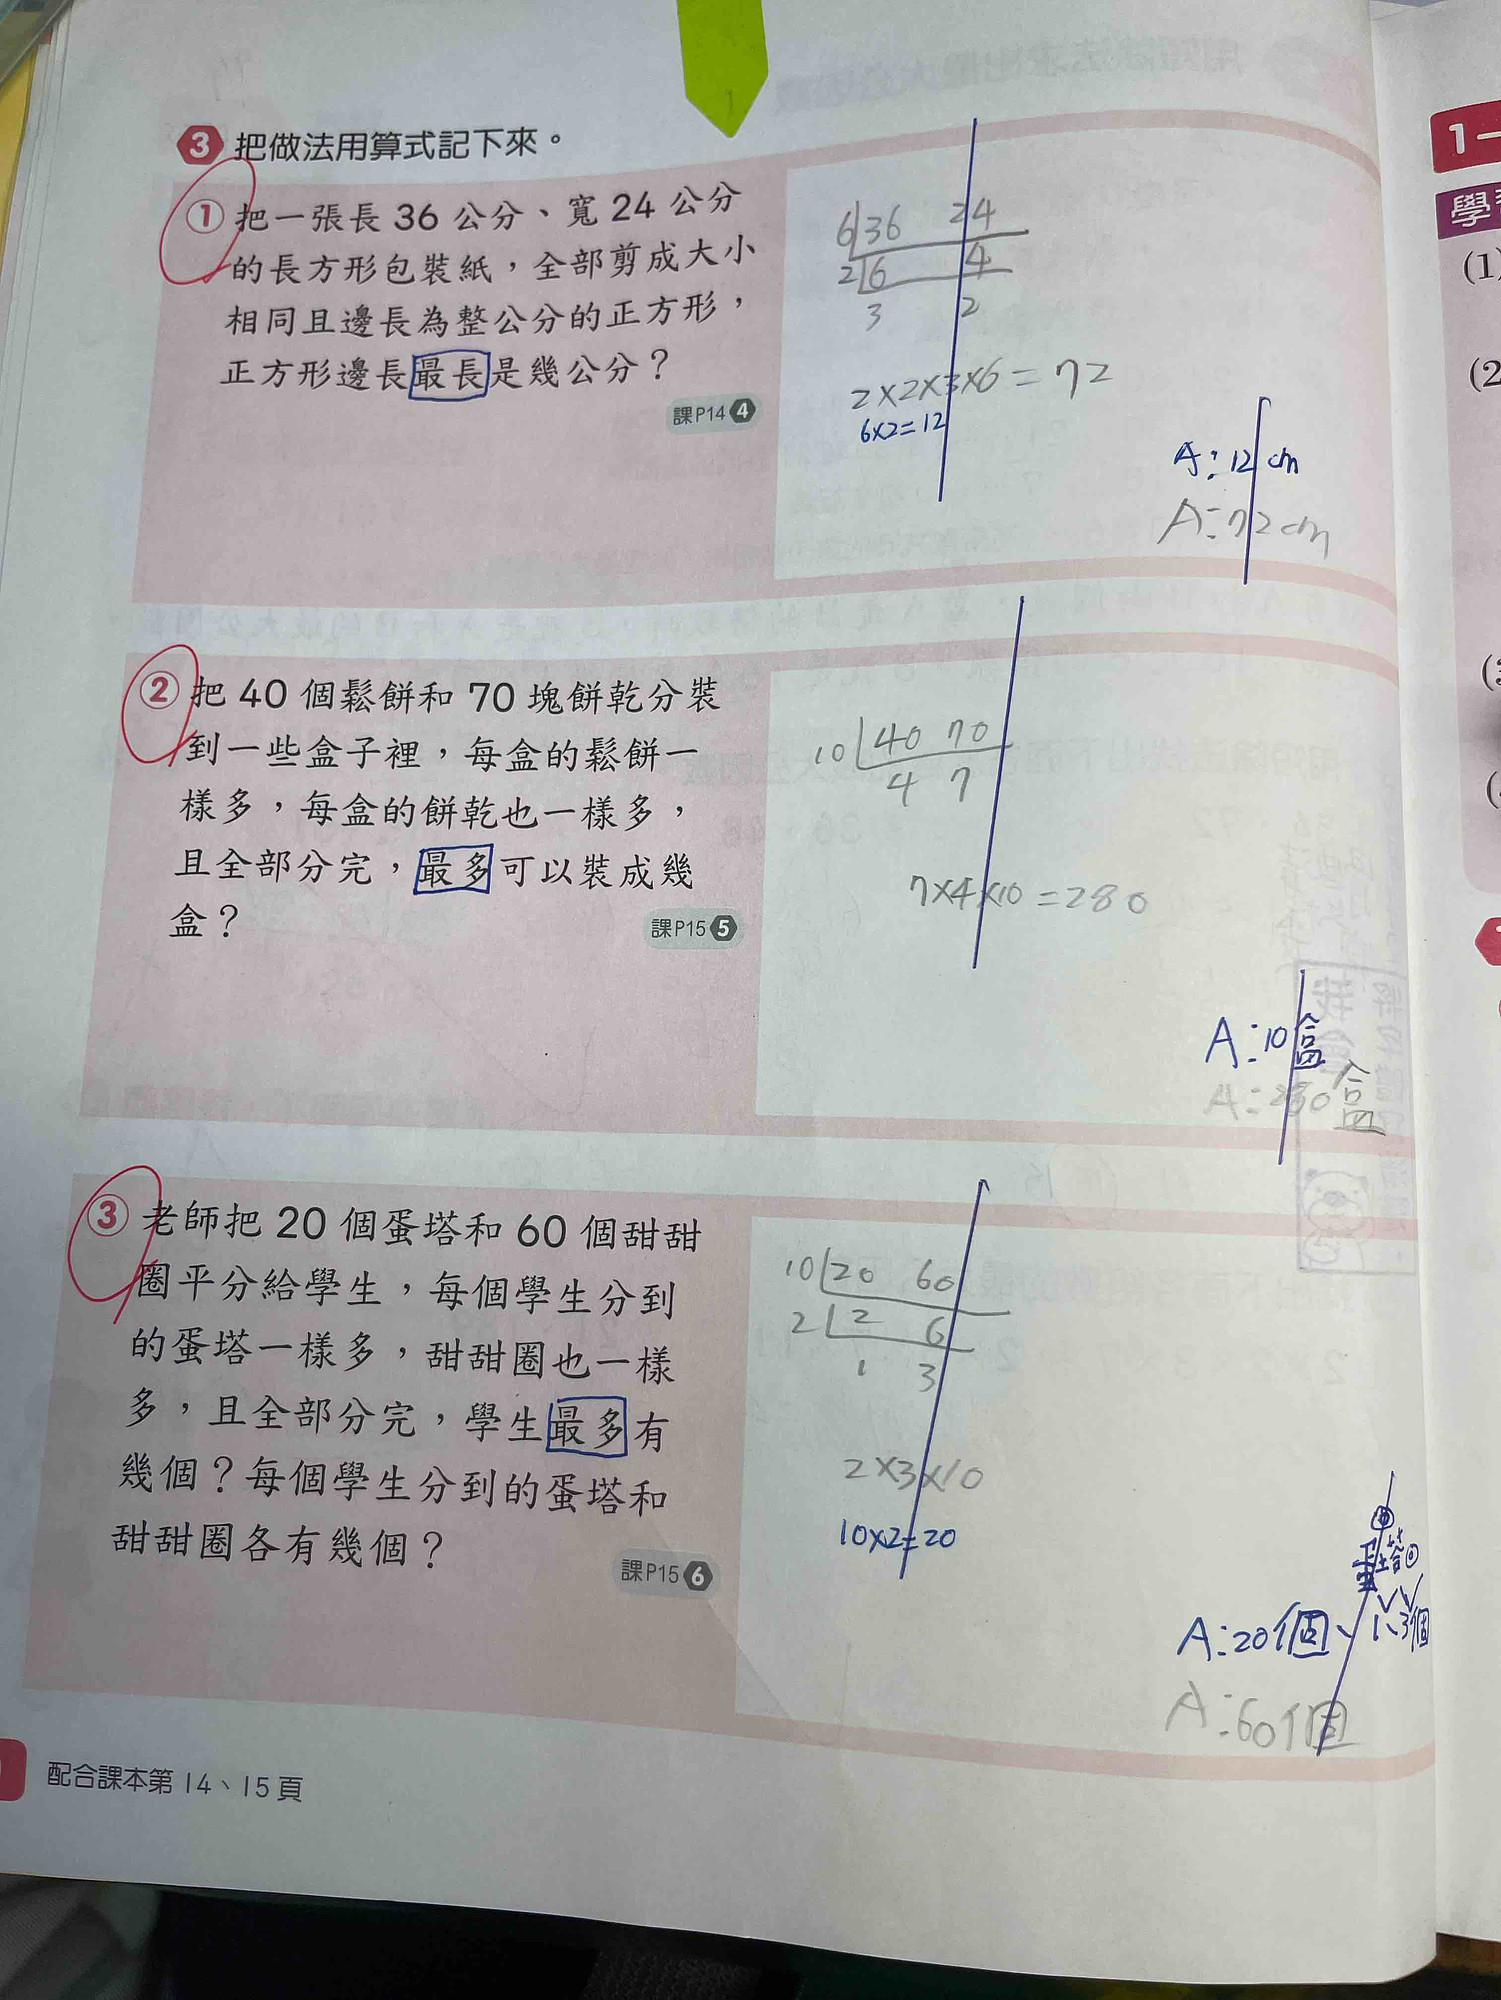 3 把做法用算式記下來。
① 把一張長 36 公分、寬 24 公分
的長方形包裝紙，全部剪成大小
相同且邊長為整公分的正方形，
正方形邊長最長是幾公分？
課P14 4
6 36 24
2 6 4
3 2
2×2×3×6=72
6×2=12
A:12cm
A:72cm
② 把 40 個鬆餅和 70 塊餅乾分裝
到一些盒子裡，每盒的鬆餅一
樣多，每盒的餅乾也一樣多，
且全部分完，最多可以裝成幾
盒？
課P15 5
10 40 70
4 7
7×4×10=280
A:10盒
A:280盒
③ 老師把 20 個蛋塔和 60 個甜甜
圈平分給學生，每個學生分到
的蛋塔一樣多，甜甜圈也一樣
多，且全部分完，學生最多有
幾個？每個學生分到的蛋塔和
甜甜圈各有幾個？
課P15 6
10 20 60
2 2 6
1 3
2×3×10
10×2=20
蛋塔
A:20個、1、3個
A:60個
配合課本第 14、15 頁
1-
學
(1)
(2